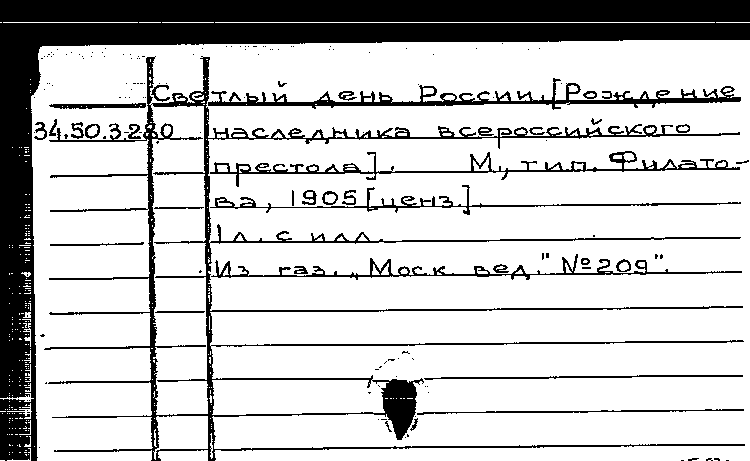 Светлый день России. [Рождение
34.50.3.280 наследника всероссийского
престола]. М., тип. Филато-
ва, 1905 [ценз.].
1 л. с илл.
Из газ. „Моск. вед." №209".